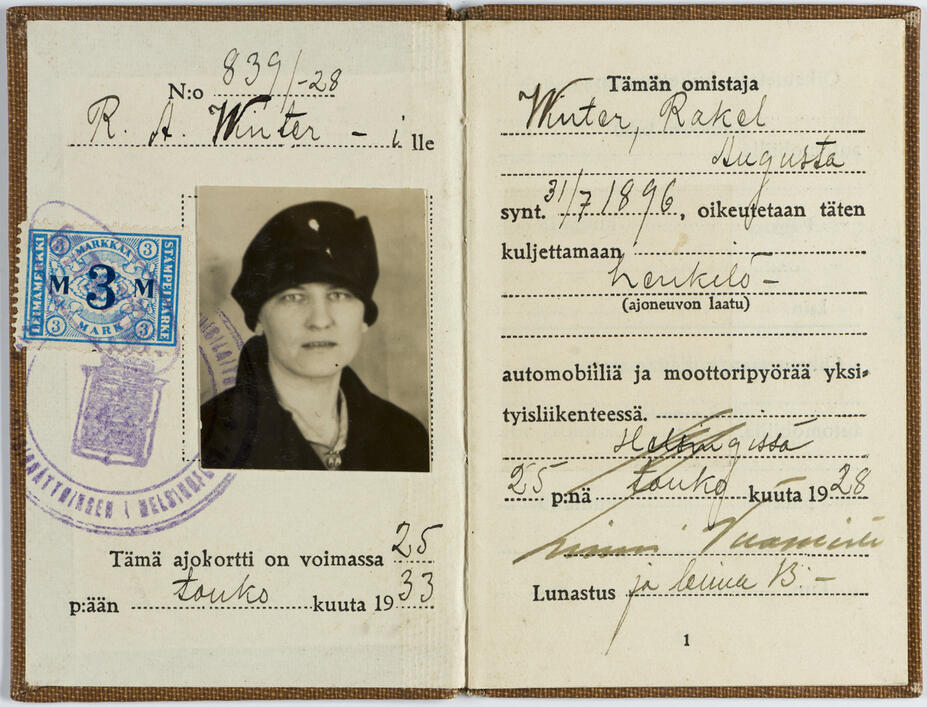 N:o 839/-28
R. A. Winter - ille
LEIMAMERKKI
3 MARKKAA 3
M 3 M
3 MARK 3
STÄMPELMÄRKE
Tämä ajokortti on voimassa 25
p:ään touko kuuta 1933
Tämän omistaja
Winter, Rakel
Augusta
synt. 31/7 1896, oikeutetaan täten
kuljettamaan
henkilö-
(ajoneuvon laatu)
automobiiliä ja moottoripyörää yksi-
tyisliikenteessä.
Helsingissä
25 p:nä touko kuuta 1928
Lunastus ja leima 13:-
1